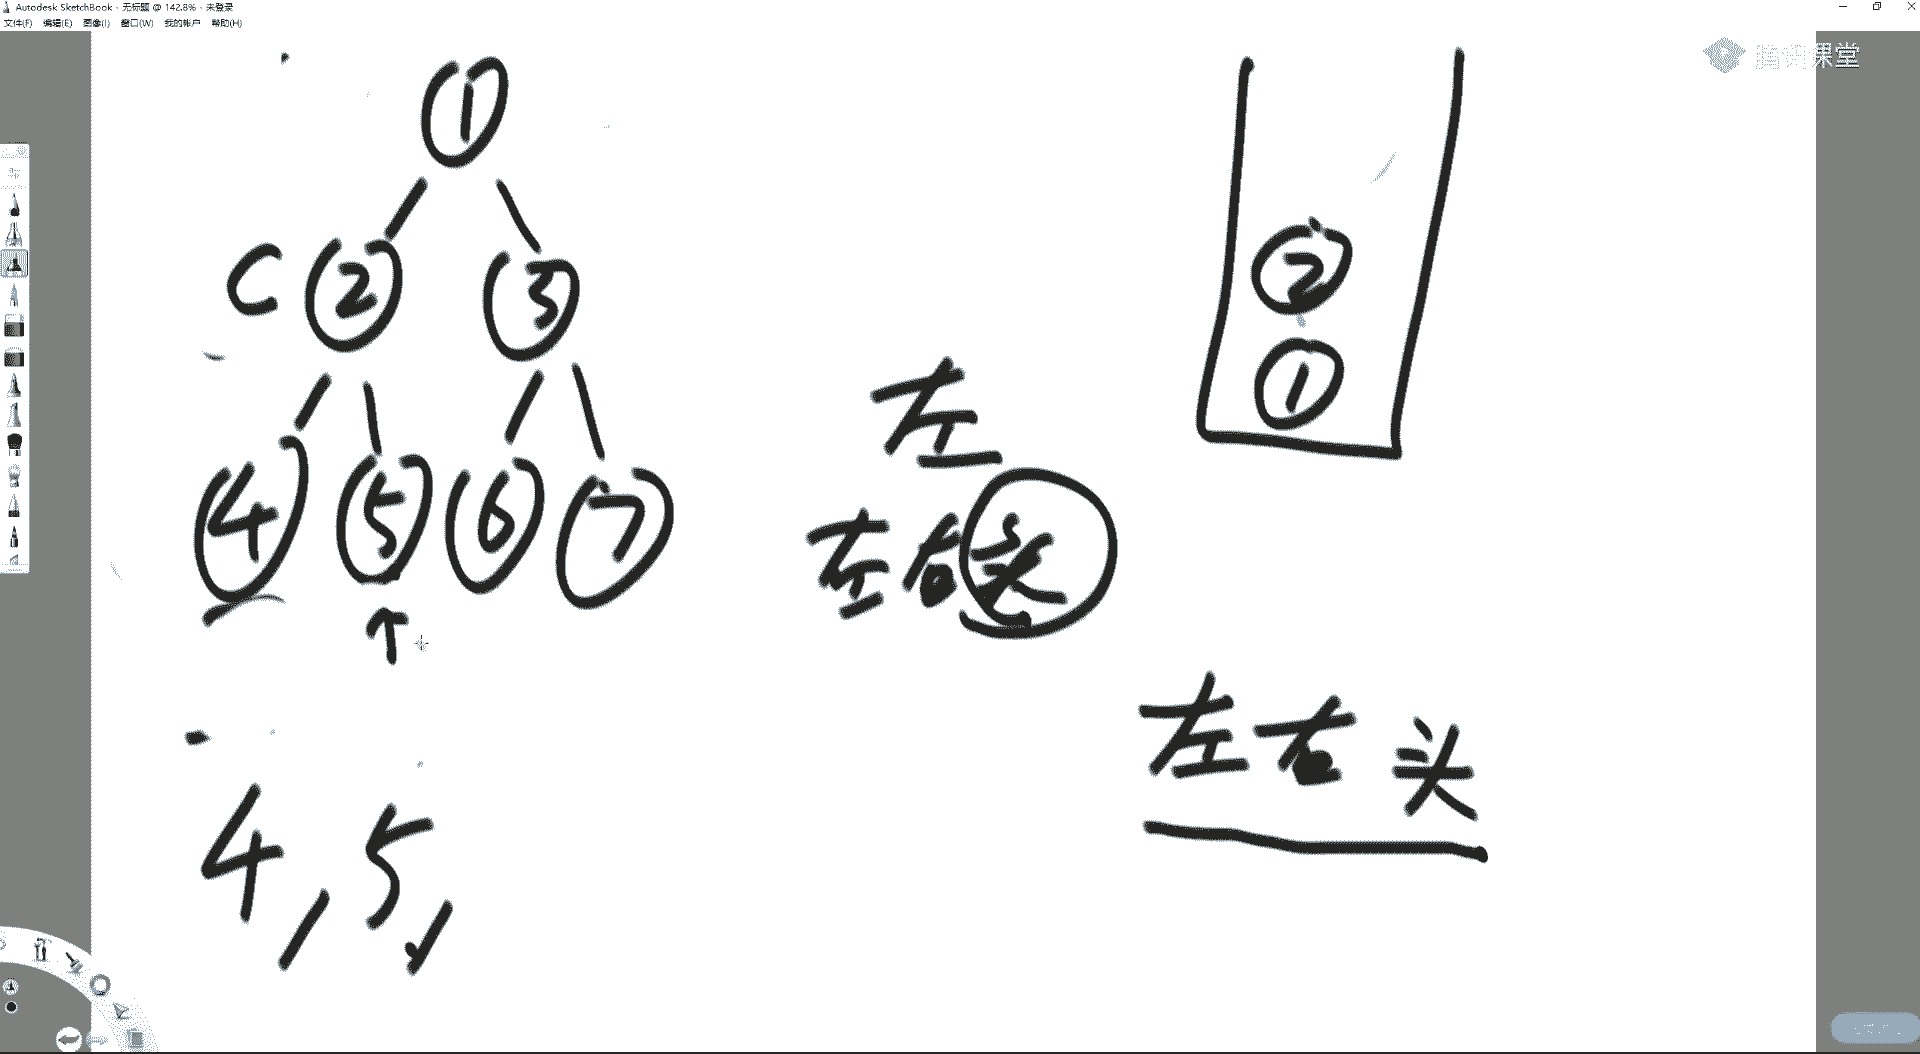 Autodesk SketchBook - 无标题 @ 142.8% - 未登录
文件(F) 编辑(E) 图像(I) 窗口(W) 我的帐户 帮助(H)
腾讯课堂
1
C 2 3
4 5 6 7
2
1
左
左右头
左右头
4, 5,